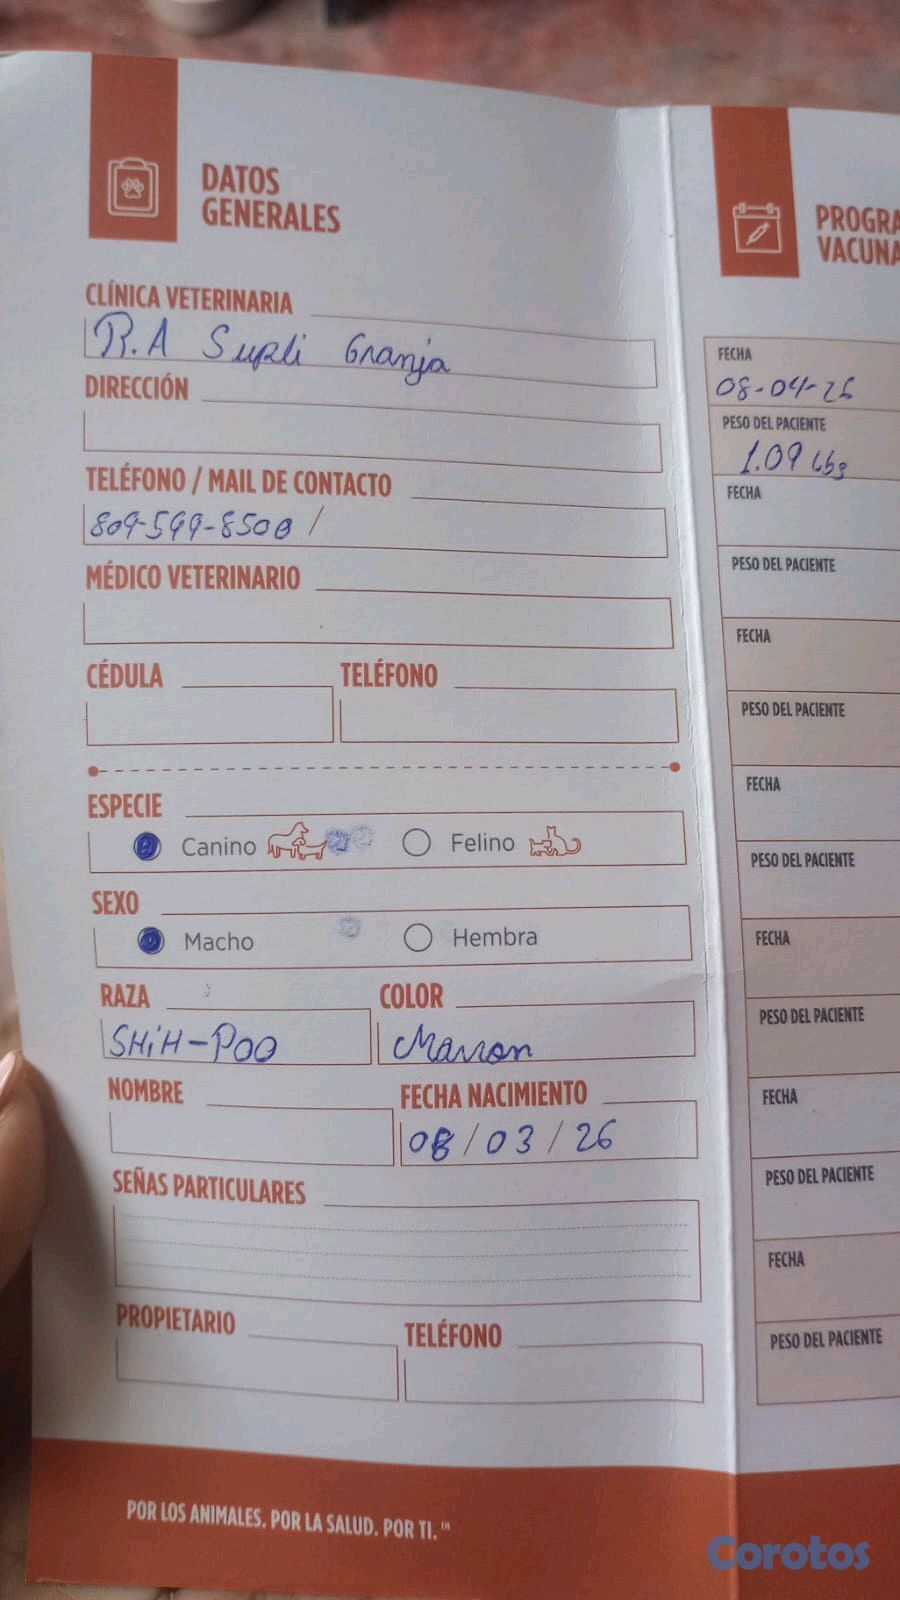 DATOS
GENERALES
CLÍNICA VETERINARIA
R.A Supli Granja
DIRECCIÓN
TELÉFONO / MAIL DE CONTACTO
809-599-8508 /
MÉDICO VETERINARIO
CÉDULA TELÉFONO
ESPECIE
Canino Felino
SEXO
Macho Hembra
RAZA COLOR
SHiH-POO Marron
NOMBRE FECHA NACIMIENTO
08/03/26
SEÑAS PARTICULARES
PROPIETARIO TELÉFONO
POR LOS ANIMALES. POR LA SALUD. POR TI.™
PROGRA
VACUNA
FECHA
08-04-26
PESO DEL PACIENTE
1.09 Lbs
FECHA
PESO DEL PACIENTE
FECHA
PESO DEL PACIENTE
FECHA
PESO DEL PACIENTE
FECHA
PESO DEL PACIENTE
FECHA
PESO DEL PACIENTE
FECHA
PESO DEL PACIENTE
Corotos